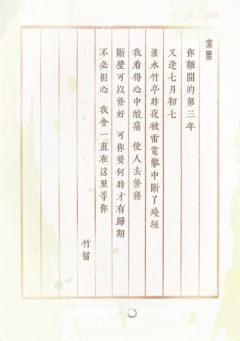 你離開的第三年
又逢七月初七
淮水竹亭昨夜被雷電擊中斷了殘垣
我看得心中酸痛 使人去修繕
斷壁可以修好 可你要何時才有歸期
不必担心 我會一直在这里等你
竹留